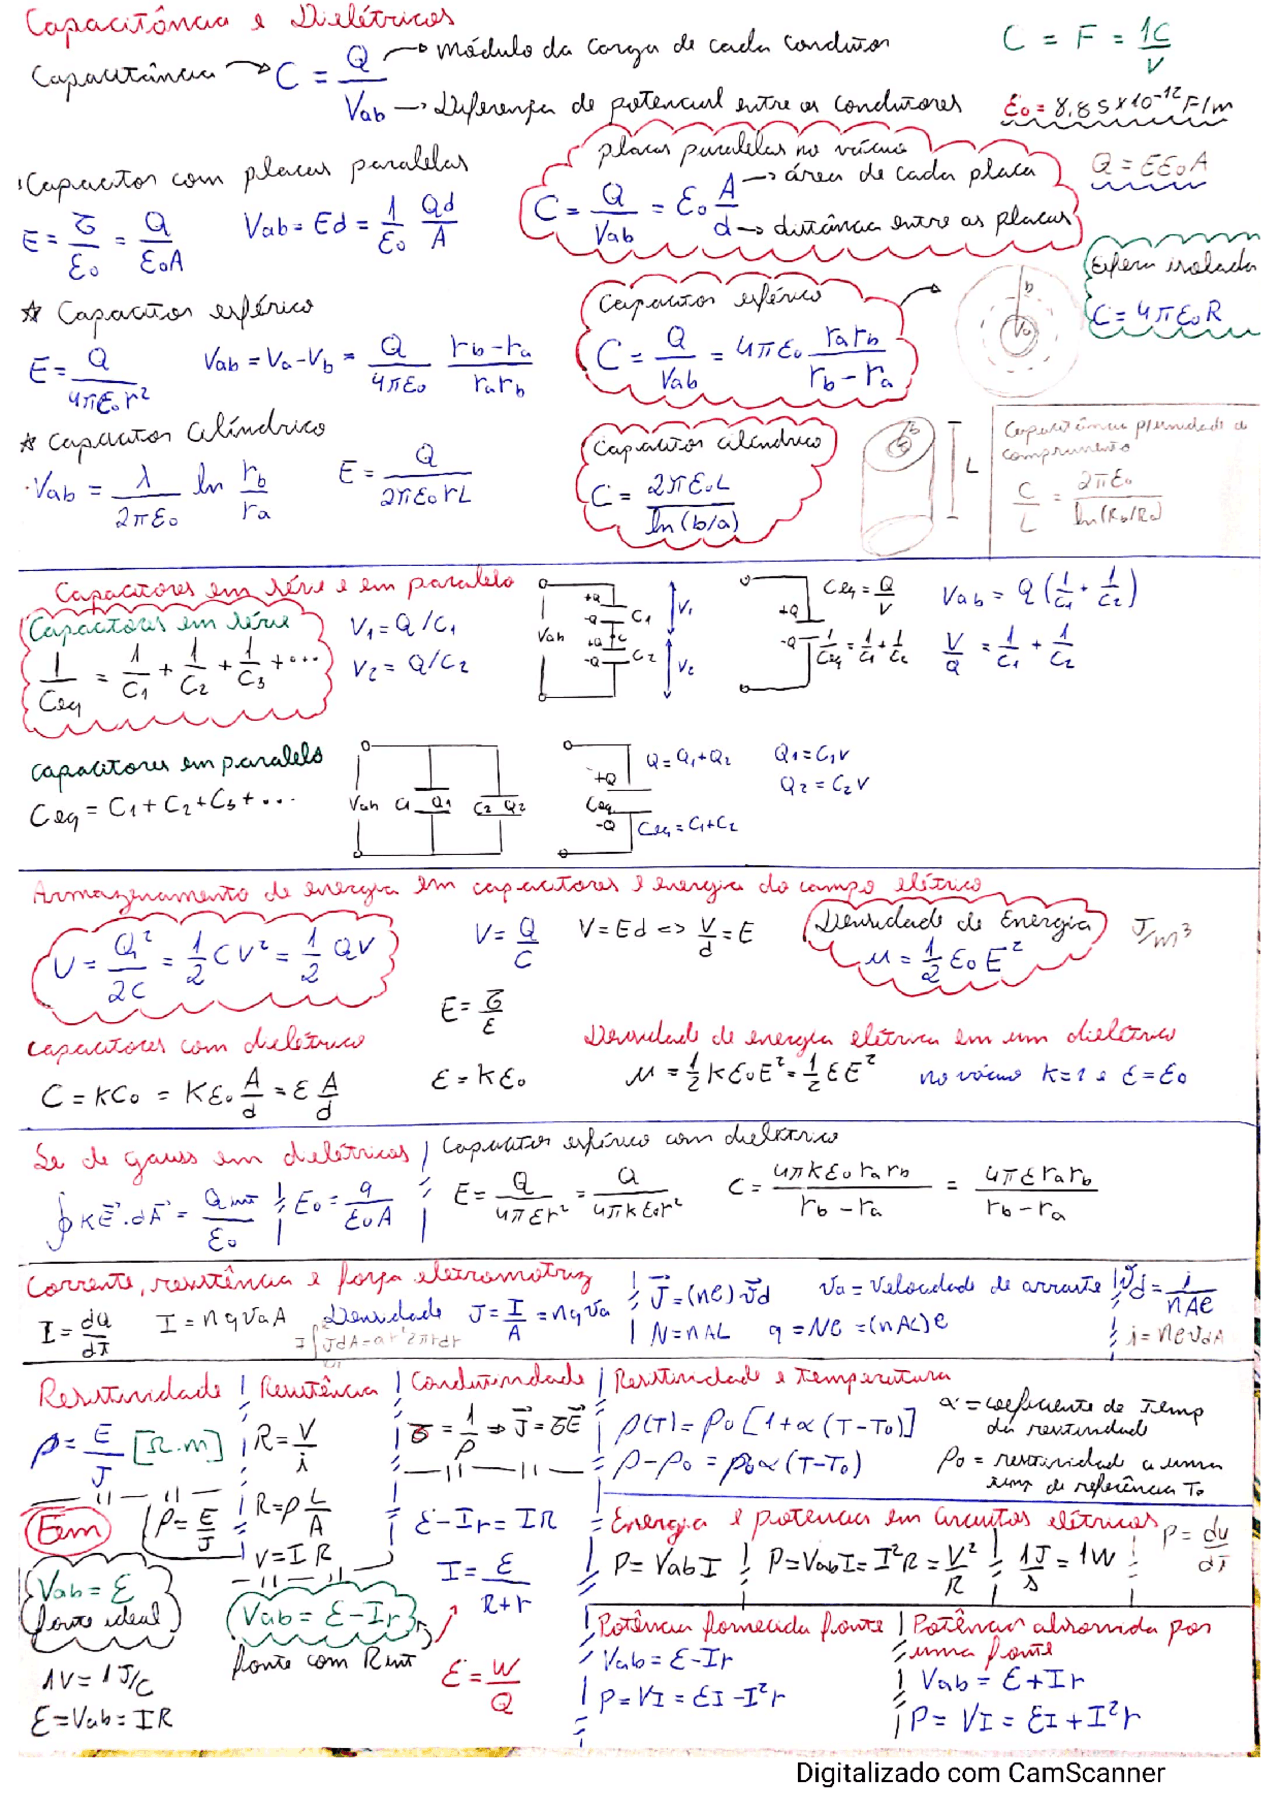 Capacitância e Dielétricos
Capacitância → C = Q/Vab
Q → módulo da carga de cada condutor
Vab → Diferença de potencial entre os condutores
C = F = 1C/V
ε0 = 8.85×10^-12 F/m
Capacitor com placas paralelas
E = σ/ε0 = Q/ε0A
Vab = Ed = 1/ε0 Qd/A
placas paralelas no vácuo
C = Q/Vab = ε0 A/d
A → área de cada placa
d → distância entre as placas
Q = Eε0A
☆ Capacitor esférico
E = Q/4πε0r²
Vab = Va - Vb = Q/4πε0 rb-ra/rarb
Capacitor esférico
C = Q/Vab = 4πε0 rarb/rb-ra
b
Esfera isolada
C = 4πε0R
☆ Capacitor Cilíndrico
Vab = λ/2πε0 ln rb/ra
E = Q/2πε0rL
Capacitor cilíndrico
C = 2πε0L/ln(b/a)
L
Capacitância p/unidade de
comprimento
C/L = 2πε0/ln(Rb/Ra)
Capacitores em série e em paralelo
Capacitores em série
1/Ceq = 1/C1 + 1/C2 + 1/C3 + ...
V1 = Q/C1
V2 = Q/C2
Vab +Q -Q C1 +Q C -Q C2 V1 V2
+Q -Q
Ceq = Q/V
1/Ceq = 1/C1 + 1/C2
Vab = Q(1/C1 + 1/C2)
V/Q = 1/C1 + 1/C2
capacitores em paralelo
Ceq = C1 + C2 + C3 + ...
Vab C1 Q1 C2 Q2
+Q Ceq -Q
Q = Q1 + Q2
Ceq = C1 + C2
Q1 = C1V
Q2 = C2V
Armazenamento de energia em capacitores e energia do campo elétrico
U = Q²/2C = 1/2 CV² = 1/2 QV
V = Q/C
V = Ed <=> V/d = E
Densidade de Energia
u = 1/2 ε0E²
J/m³
E = σ/ε
capacitores com dielétrico
C = KC0 = Kε0 A/d = ε A/d
ε = kε0
Densidade de energia elétrica em um dielétrico
u = 1/2 kε0E² = 1/2 εE²
no vácuo k=1 e ε=ε0
Lei de gauss em dielétricos
∮ KE⃗.dA⃗ = Q int/ε0
E0 = q/ε0A
Capacitor esférico com dielétrico
E = Q/4πεr² = Q/4πkε0r²
C = 4πkε0rarb/rb-ra = 4πεrarb/rb-ra
Corrente, resistência e força eletromotriz
I = dQ/dt
I = nqVdA
Densidade J = I/A = nqVd
J⃗ = (ne)v⃗d
N = nAL
q = Ne = (nAL)e
Vd = Velocidade de arraste
v⃗d = i/nAe
i = neVdA
Resistividade
ρ = E/J [Ω.m]
ρ = E/J
Resistência
R = V/i
R = ρ L/A
V = I R
Condutividade
σ = 1/ρ ⇒ J⃗ = σE⃗
Resistividade e temperatura
ρ(T) = ρ0 [1+α(T-T0)]
ρ - ρ0 = ρ0α(T-T0)
α = coeficiente de temp
da resistividade
ρ0 = resistividade a uma
temp de referência T0
Fem
Vab = ε
fonte ideal
1V = 1J/C
ε = Vab = IR
Vab = ε - Ir
fonte com Rint
ε - Ir = IR
I = ε/R+r
ε = W/Q
Energia e potência em Circuitos elétricos
P = VabI
P = VabI = I²R = V²/R
1J/s = 1W
P = dU/dt
Potência fornecida fonte
Vab = ε - Ir
P = VI = εI - I²r
Potência absorvida por
uma fonte
Vab = ε + Ir
P = VI = εI + I²r
Digitalizado com CamScanner